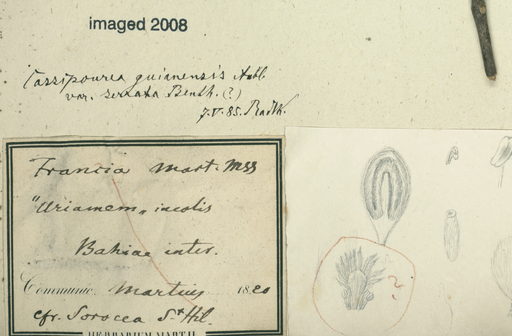 imaged 2008
Cassipourea guianensis Aubl.
var. serrata Benth. (?)
7.V.85. Radlk.
Francia Mart. Mss
"Uriamem" incolis
Bahiae inter.
Communic. Martius 1820
cfr. Sorocea St Hil.
HERBARIUM MARTII
?